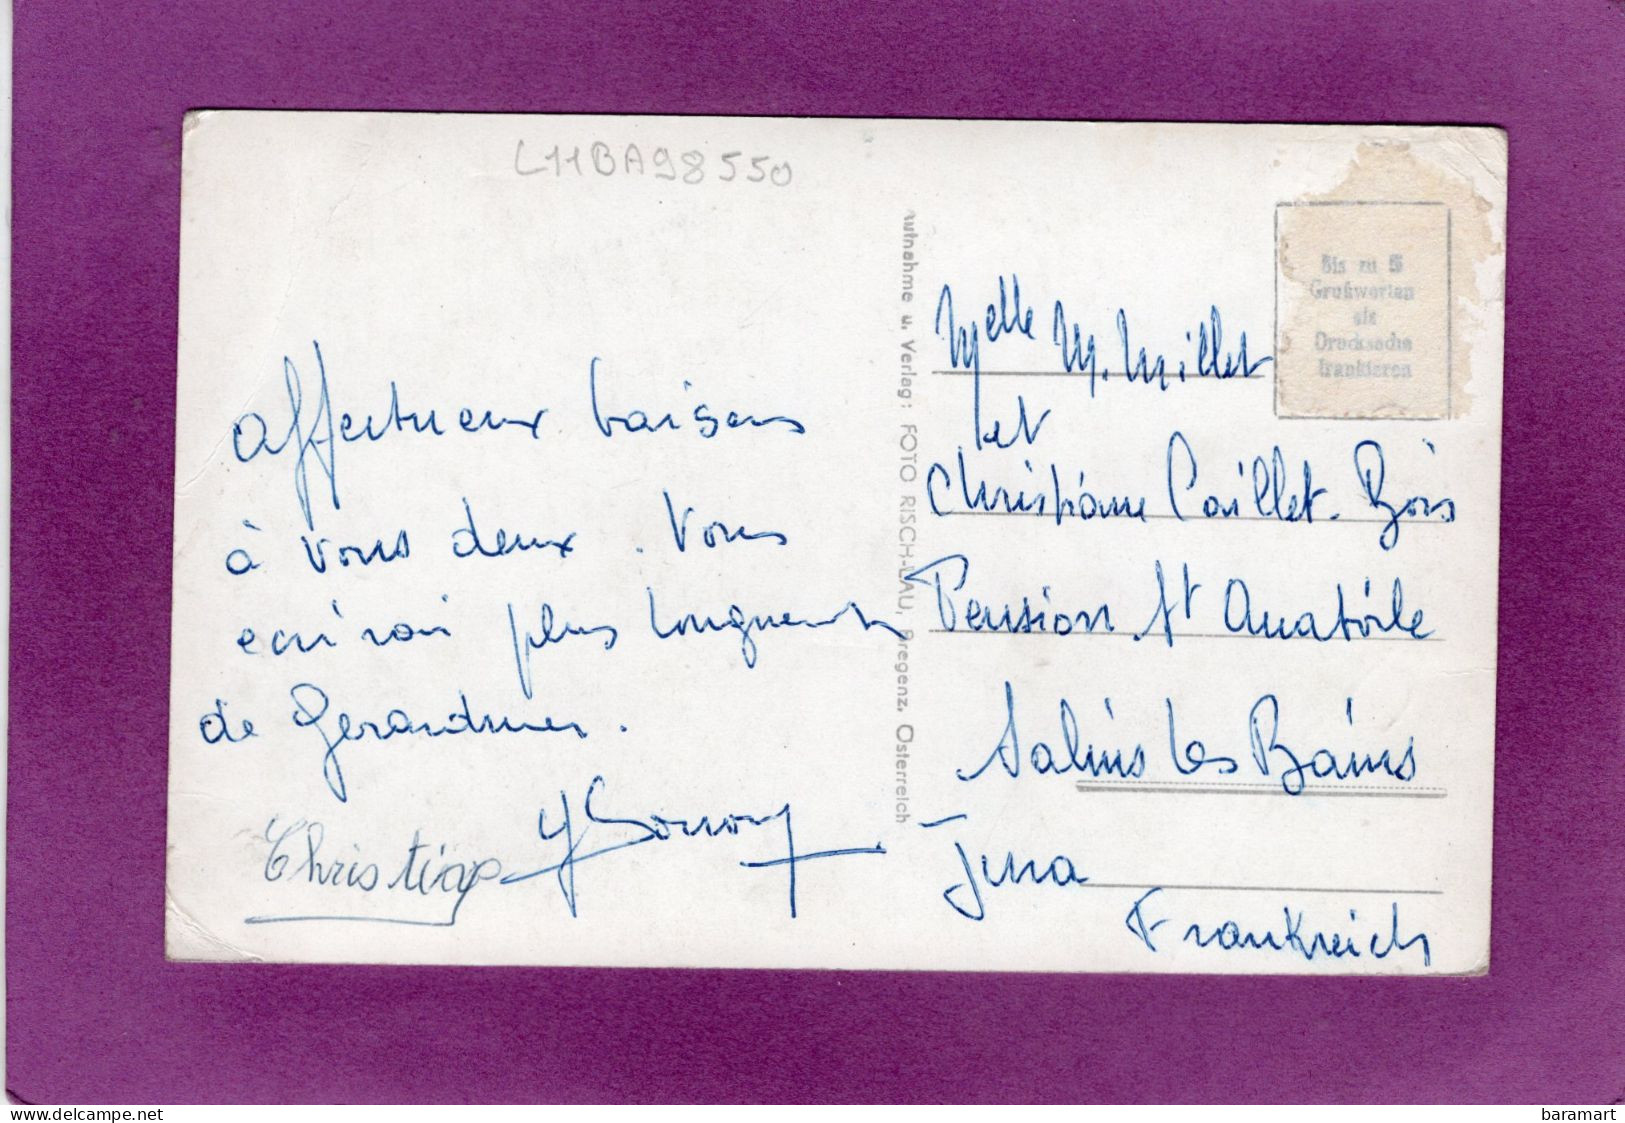 L11BA98550
affectueux baisers
à vous deux. Vous
ecrirai plus longuement
de Gerardmer.
Christian
Aufnahme u. Verlag: FOTO RISCH-LAU, Bregenz, Österreich
Bis zu 5
Grußworten
als
Drucksache
frankieren
Melle M. Millet
et
Christiane Caillet-Bois
Pension St Anatoile
Salins les Bains
Jura
Frankreich
www.delcampe.net
baramart